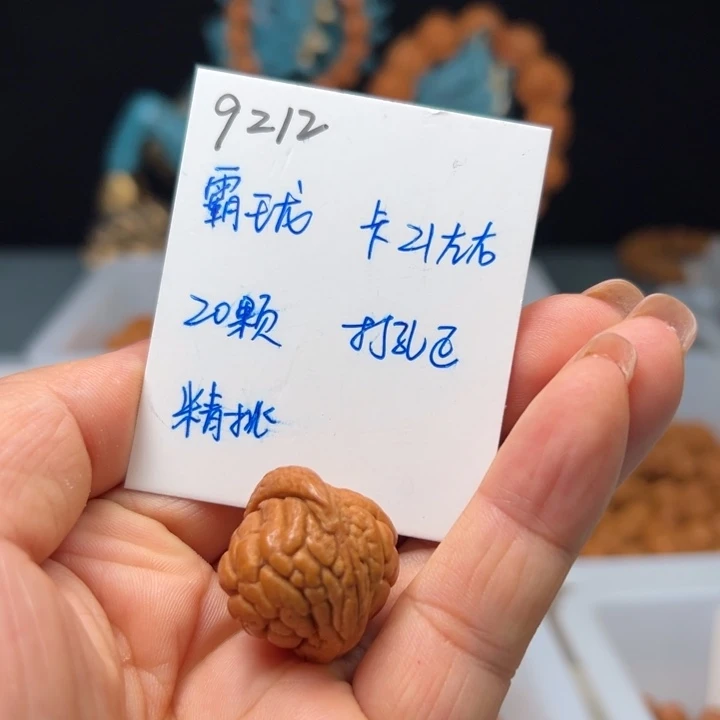 9212
霸珑 卡21左右
20颗 打孔包
精挑